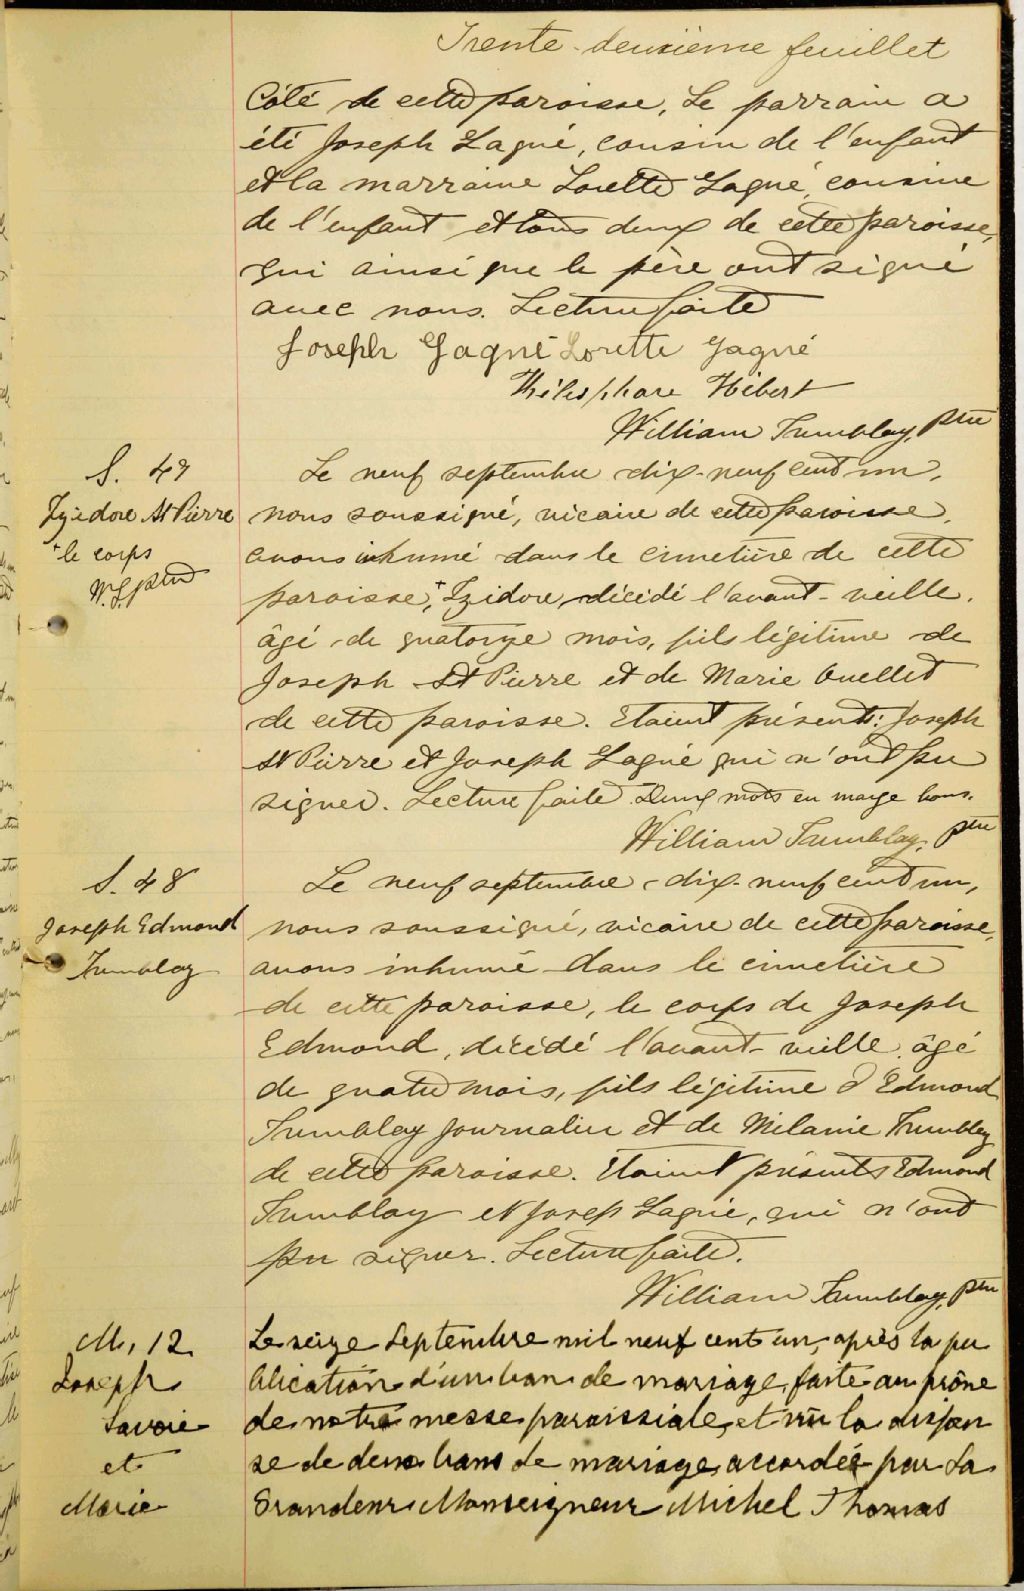 Trente-deuxième feuillet
Côté de cette paroisse. Le parrain a
été Joseph Gagné, cousin de l'enfant
et la marraine Lorette Gagné, cousine
de l'enfant et tous deux de cette paroisse,
qui ainsi que le père ont signé
avec nous. Lecture faite
Joseph Gagné Lorette Gagné
Thélesphore Hébert
William Tremblay, ptre
S. 47
Izidore St Pierre
+ le corps
W.T. ptre
Le neuf septembre dix-neuf cent un,
nous soussigné, vicaire de cette paroisse,
avons inhumé dans le cimetière de cette
paroisse, + Izidore, décédé l'avant-veille,
âgé de quatorze mois, fils légitime de
Joseph St Pierre et de Marie Ouellet
de cette paroisse. Etaient présents: Joseph
St Pierre et Joseph Gagné qui n'ont pu
signer. Lecture faite. Deux mots en marge bons.
William Tremblay, ptre
S. 48
Joseph Edmond
Tremblay
Le neuf septembre dix-neuf cent un,
nous soussigné, vicaire de cette paroisse,
avons inhumé dans le cimetière
de cette paroisse, le corps de Joseph
Edmond, décédé l'avant-veille, âgé
de quatre mois, fils légitime d'Edmond
Tremblay journalier et de Mélanie Tremblay
de cette paroisse. Etaient présents Edmond
Tremblay et Josep Gagné, qui n'ont
pu signer. Lecture faite.
William Tremblay, ptre
M. 12
Joseph
Savoie
et
Marie
Le seize Septembre mil neuf cent un, après la pu
blication d'un ban de mariage, faite au prône
de notre messe paroissiale, et vu la dispen
se de deux bans de mariage, accordée par Sa
Grandeur Monseigneur Michel Thomas